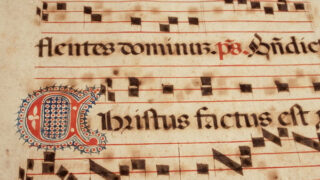 flentes dominuz. ps. Bn̄dict
Christus factus est